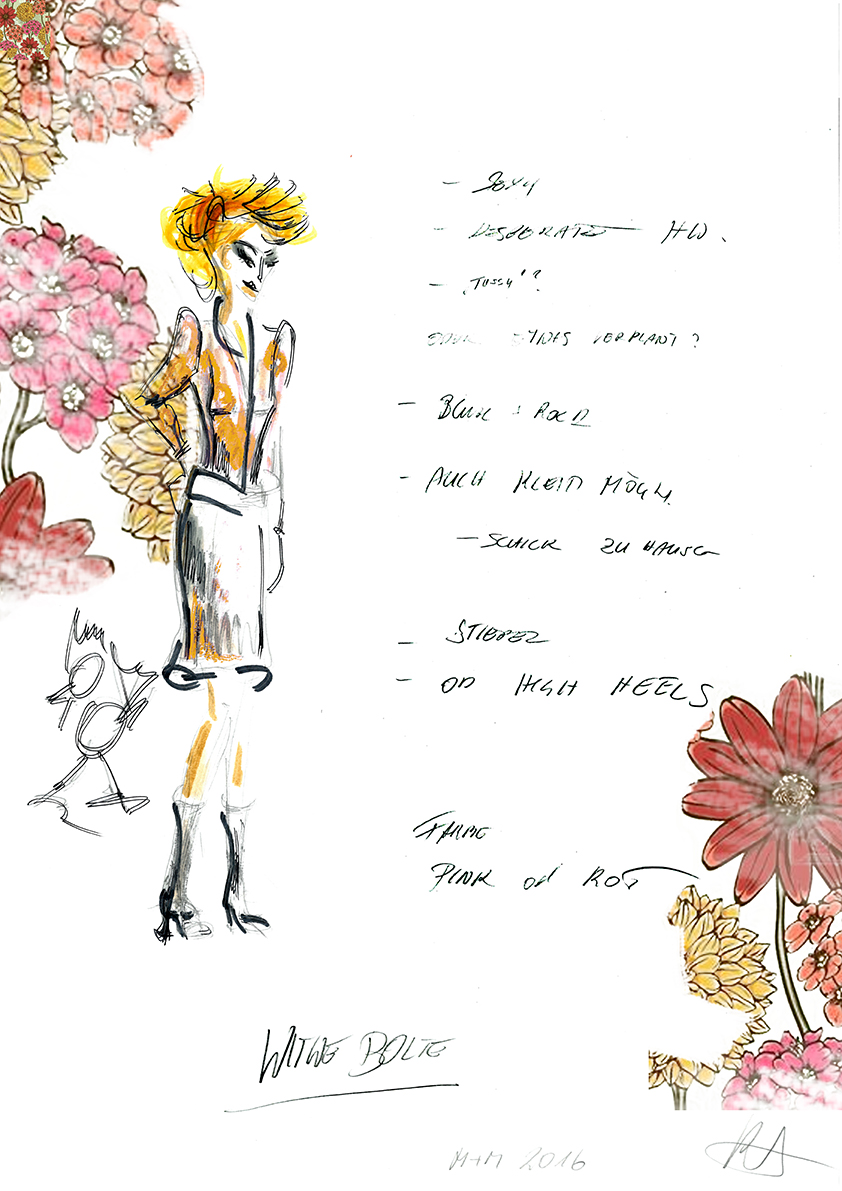 - SEXY
- DESPERATE HW.
- "TUSSY"?
VERPLANT?
- BLUSE + ROCK
- AUCH KLEID MÖGL.
- SCHICK ZU HAUSE
- STIEFEL
- OD HIGH HEELS
FARBE
PINK od ROT
WITWE BOLTE
M+M 2016